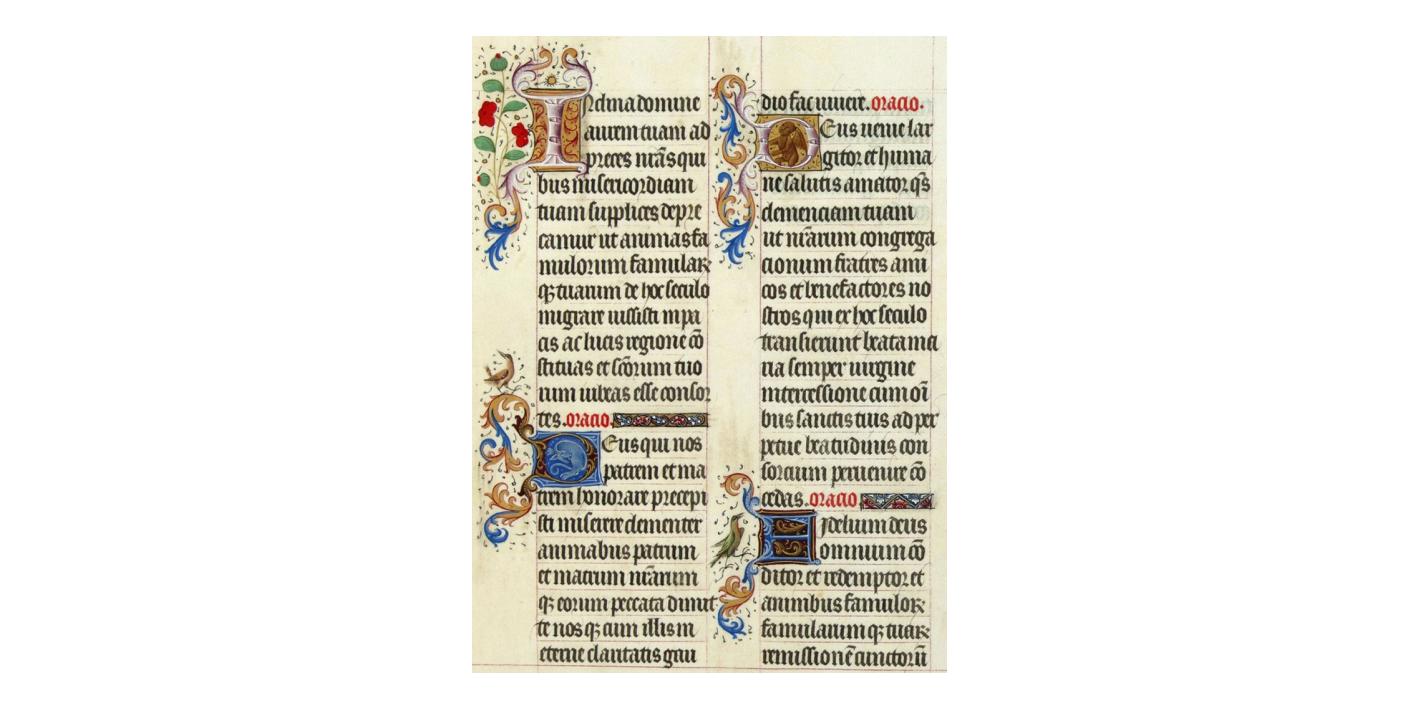 Inclina domine
aurem tuam ad
preces nr̄as qui
bus misericordiam
tuam supplices depre
camur ut animas fa
mulorum famulaꝝ
qꝫ tuarum de hoc seculo
migrare iussisti in pa
cis ac lucis regione cō
stituas et scōrum tuo
rum iubeas esse consor
tes. oracio.
Deus qui nos
patrem et ma
trem honorare precepi
sti miserere clementer
animabus patrum
et matrum nr̄arum
qꝫ eorum peccata dimit
te nosqꝫ cum illis in
eterne claritatis gau
dio fac uiuere. oracio.
Deus uenie lar
gitor et huma
ne salutis amator qs̄
clemenciam tuam
ut nr̄arum congrega
cionum fratres ami
cos et benefactores no
stros qui ex hoc seculo
transierunt beata ma
ria semper uirgine
intercessione cum oī
bus sanctis tuis ad per
petue beatitudinis con
sorcium peruenire cō
cedas. oracio
Fidelium deus
omnium cō
ditor et redemptor et
animbus famuloꝝ
famularum qꝫ tuaꝝ
remissionē cunctorū